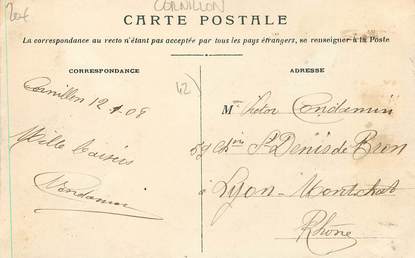 20€
CORNILLON
CARTE POSTALE
La correspondance au recto n'étant pas acceptée par tous les pays étrangers, se renseigner à la Poste
CORRESPONDANCE
Cornillon 12-1-09
Mille baisers
Condamin
42)
ADRESSE
M Victor Condamin
59 chin St Denis de Bron
à Lyon-Montchat
Rhône